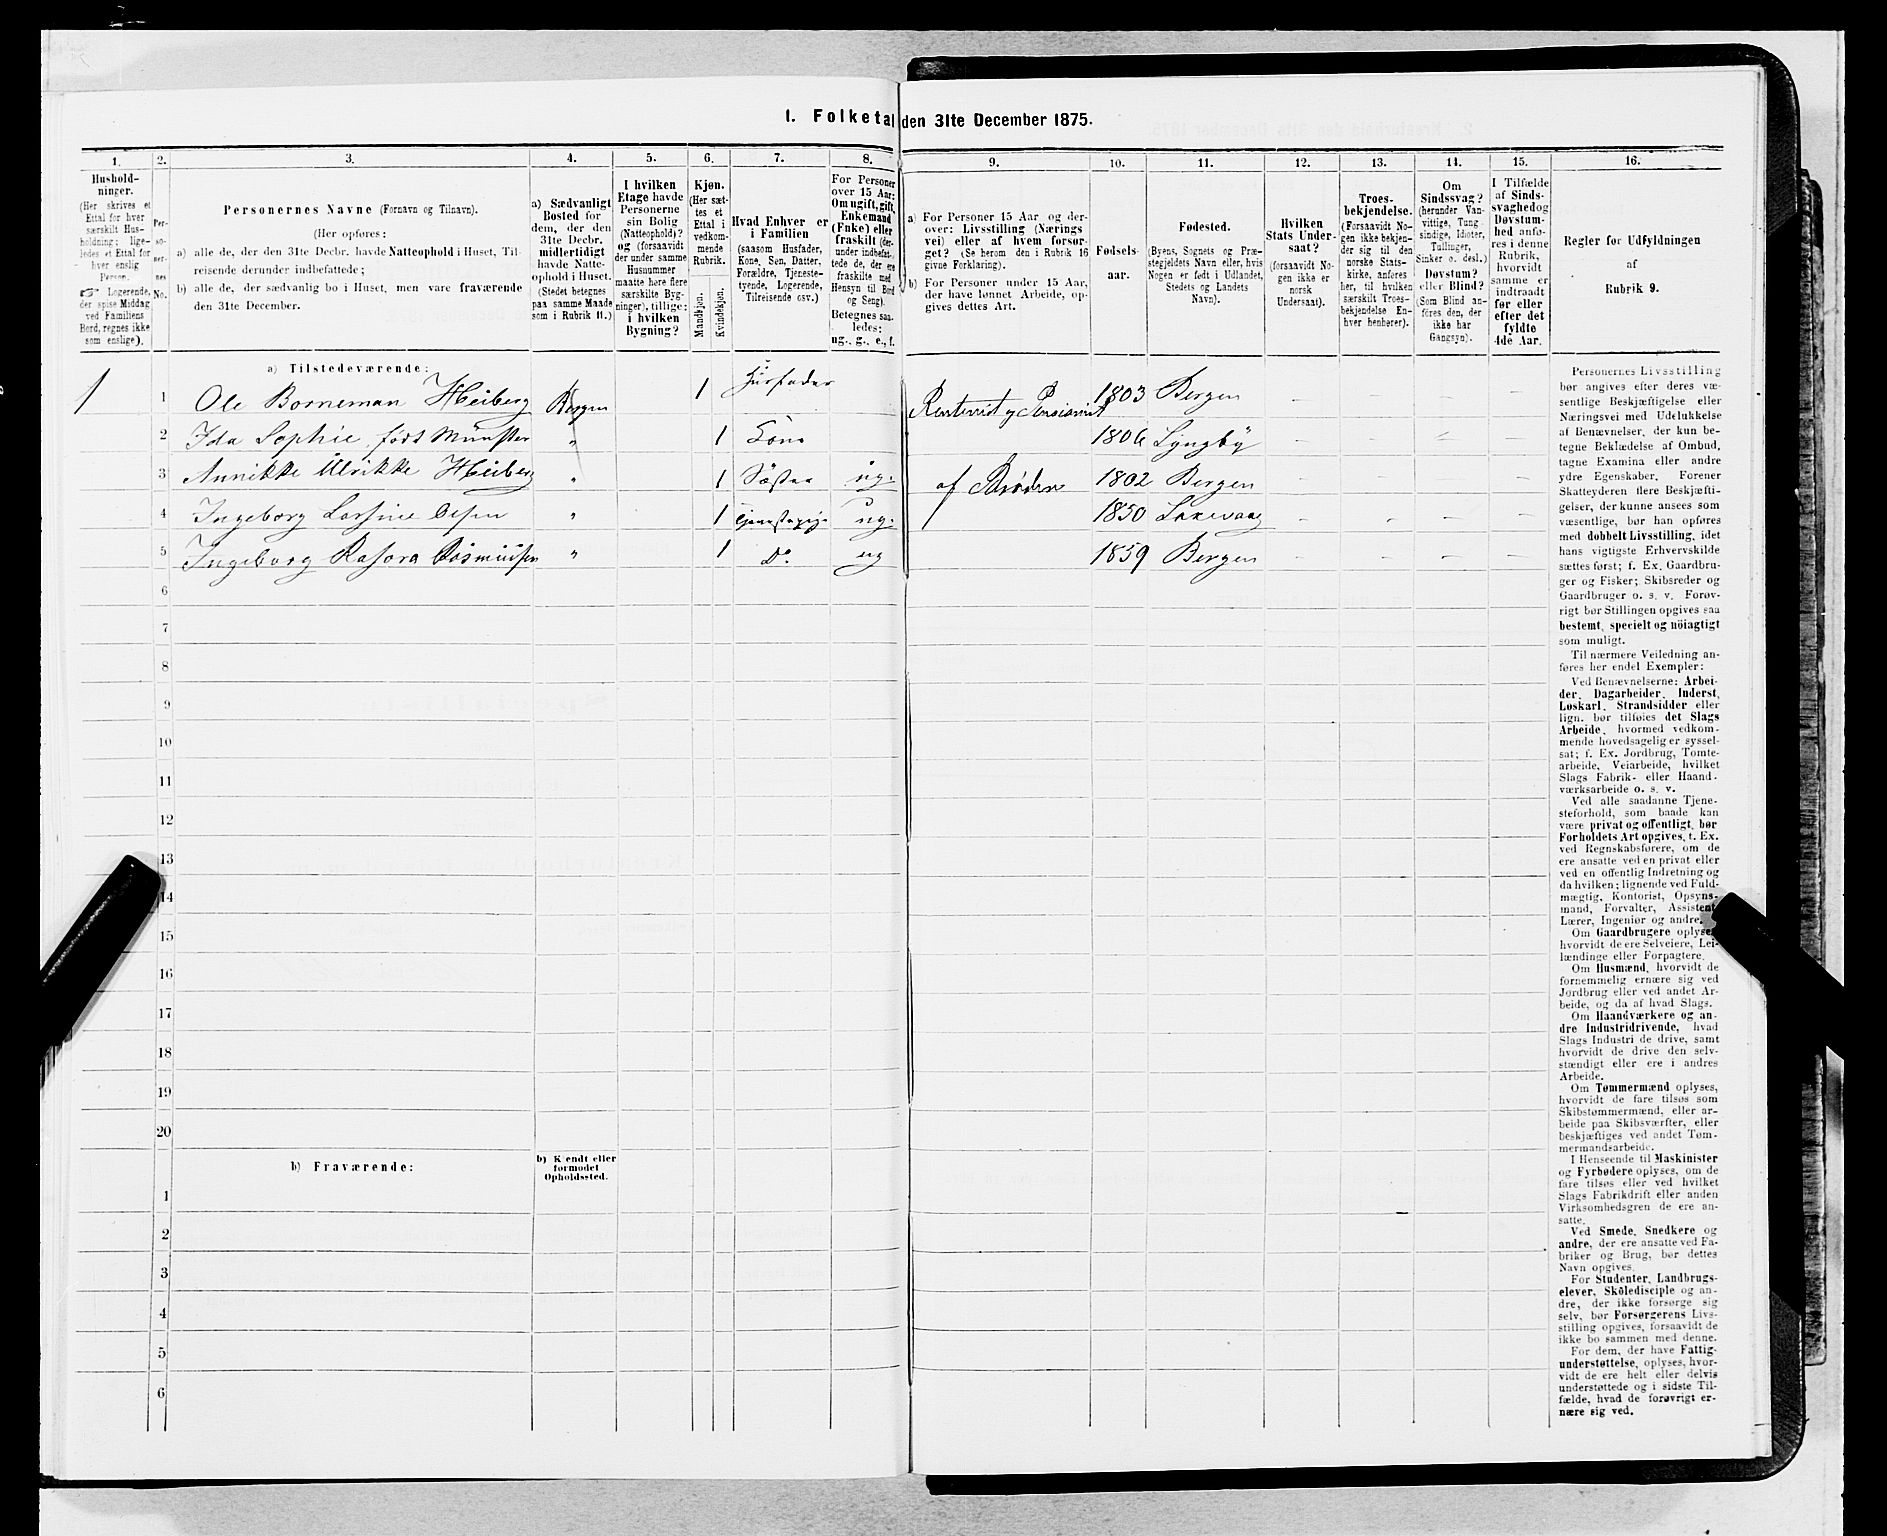 1. Folketal den 31te December 1875.
1.
2.
3.
4.
5.
6.
7.
8.
9.
10.
11.
12.
13.
14.
15.
16.
Hushold-
ninger.
(Her skrives et
Ettal for hver
særskilt Hus-
holdning; lige-
ledes et Ettal for
hver enslig
Person.
☞ Logerende,
der spise Middag
ved Familiens
Bord, regnes ikke
som enslige).
Per-
so-
ner-
nes
No.
Personernes Navne (Fornavn og Tilnavn).
(Her opføres:
a) alle de, der den 31te Decbr. havde Natteophold i Huset, Til-
reisende derunder indbefattede;
b) alle de, der sædvanlig bo i Huset, men vare fraværende
den 31te December.
a) Sædvanligt
Bosted for
dem, der den
31te Decbr.
midlertidigt
havde Natte-
ophold i Huset.
(Stedet betegnes
paa samme Maade
som i Rubrik 11.)
I hvilken
Etage havde
Personerne
sin Bolig
(Natteophold)?
og (forsaavidt
der under samme
Husnummer
maatte høre flere
særskilte Byg-
ninger), tillige:
i hvilken
Bygning?
Kjøn.
(Her sæt-
tes et
Ettal i
vedkom-
mende
Rubrik.
Mandkjøn.
Kvindekjøn.
Hvad Enhver er
i Familien
(saasom Husfader,
Kone, Søn, Datter,
Forældre, Tjeneste-
tyende, Logerende,
Tilreisende osv.)
For Personer
over 15 Aar:
Om ugift, gift,
Enkemand
(Enke) eller
fraskilt (der-
under indbefat-
tede de, der ere
fraskilte med
Hensyn til Bord
og Seng).
Betegnes saa-
ledes:
ug., g., e., f.
a) For Personer 15 Aar og der-
over: Livsstilling (Nærings
vei) eller af hvem forsør-
get? (Se herom den i Rubrik 16
givne Forklaring).
b) For Personer under 15 Aar,
der have lønnet Arbeide, op-
gives dettes Art.
Fødsels-
aar.
Fødested.
(Byens, Sognets og Præ-
stegjeldets Navn eller, hvis
Nogen er født i Udlandet,
Stedets og Landets
Navn).
Hvilken
Stats Under-
saat?
(forsaavidt No-
gen ikke er
norsk
Undersaat).
Troes-
bekjendelse.
(Forsaavidt No-
gen ikke bekjen-
der sig til den
norske Stats-
kirke, anføres
her, til hvilken
særskilt Troes-
bekjendelse En-
hver henhører).
Om
Sindssvag?
(herunder Van-
vittige, Tung-
sindige, Idioter,
Tullinger,
Sinker o. desl.)
Døvstum?
eller Blind?
(Som Blind an-
føres den, der
ikke har
Gangsyn).
I Tilfælde
af Sinds-
svaghed og
Døvstum-
hed anfø-
res i denne
Rubrik,
hvorvidt
samme er
indtraadt
før eller
efter det
fyldte
4de Aar.
Regler for Udfyldningen
af
Rubrik 9.
a) Tilstedeværende:
1 1 Ole Borneman Heiberg Bergen 1 Husfader Rentenist og Pensionist 1803 Bergen – – – –
2 Ida Sophie født Münster " 1 Kone 1806 Lyngby – – – –
3 Annikke Ulrikke Heiberg " 1 Søster ug. af Broderen 1802 Bergen – – – –
4 Ingeborg Olsen " 1 Tjenestepige ug. 1850 Laxevaag – – – –
5 Ingeborg Rasmussen " 1 Do ug 1859 Bergen – – – –
6
7
8
9
10
11
12
13
14
15
16
17
18
19
20
b) Fraværende:
b) Kjendt eller
formodet
Opholdssted.
1
2
3
4
5
6
Personernes Livsstilling
bør angives efter deres væ-
sentlige Beskjæftigelse eller
Næringsvei med Udelukkelse
af Benævnelser, der kun be-
tegne Beklædelse af Ombud,
tagne Examina eller andre
ydre Egenskaber. Forener
Skatteyderen flere Beskjæfti-
gelser, der kunne ansees som
væsentlige, bør han opføres
med dobbelt Livsstilling, idet
hans vigtigste Erhvervskilde
sættes først; f. Ex. Gaardbru-
ger og Fisker; Skibsreder og
Gaardbruger o. s. v. Forøv-
rigt bør Stillingen opgives saa
bestemt, specielt og nöiagtigt
som muligt.
Til nærmere Veiledning an-
føres her endel Exempler:
Ved Benævnelserne: Arbei-
der, Dagarbeider, Inderst,
Løskarl, Strandsidder eller
lign. bør tilføies det Slags
Arbeide, hvormed vedkom-
mende hovedsagelig er syssel-
sat; f. Ex. Jordbrug, Tomte-
arbeide, Veiarbeide, hvilket
Slags Fabrik- eller Haand-
værksarbeide o. s. v.
Ved alle saadanne Tjene-
steforhold, som baade kan
være privat og offentligt, bør
Forholdets Art opgives, t. Ex.
ved Regnskabsførere, om de
ere ansatte ved en privat eller
ved en offentlig Indretning og
da hvilken; lignende ved Fuld-
mægtig, Kontorist, Opsyns-
mand, Forvalter, Assistent,
Lærer, Ingeniør og andre.
Om Gaardbrugere oplyses,
hvorvidt de ere Selveiere, Lei-
lændinge eller Forpagtere.
Om Husmænd, hvorvidt de
fornemmelig ernære sig ved
Jordbrug eller ved andet Ar-
beide, og da af hvad Slags.
Om Haandværkere og an-
dre Industridrivende, hvad
Slags Industri de drive, samt
hvorvidt de drive den selv-
stændigt eller ere i andres
Arbeide.
Om Tømmermænd oplyses,
hvorvidt de fare tilsøs som
Skibstømmermænd, eller ar-
beide paa Skibsværfter, eller
beskjæftiges ved andet Tøm-
mermandsarbeide.
I Henseende til Maskinister
og Fyrbødere oplyses, om de
fare tilsøs eller ved hvilket
Slags Fabrikdrift eller anden
Virksomhedsgren de ere an-
satte.
Ved Smede, Snedkere og
andre, der ere ansatte ved Fa-
briker og Brug, bør dettes
Navn opgives.
For Studenter, Landbrugs-
elever, Skoledisciple og an-
dre, der ikke forsørge sig
selv, bør Forsørgerens Livs-
stilling opgives, forsaavidt de
ikke bo sammen med denne.
For dem, der have Fattig-
understøttelse, oplyses, hvor-
vidt de ere helt eller delvis
understøttede og i sidste Til-
fælde, hvad de forøvrigt er-
nære sig ved.